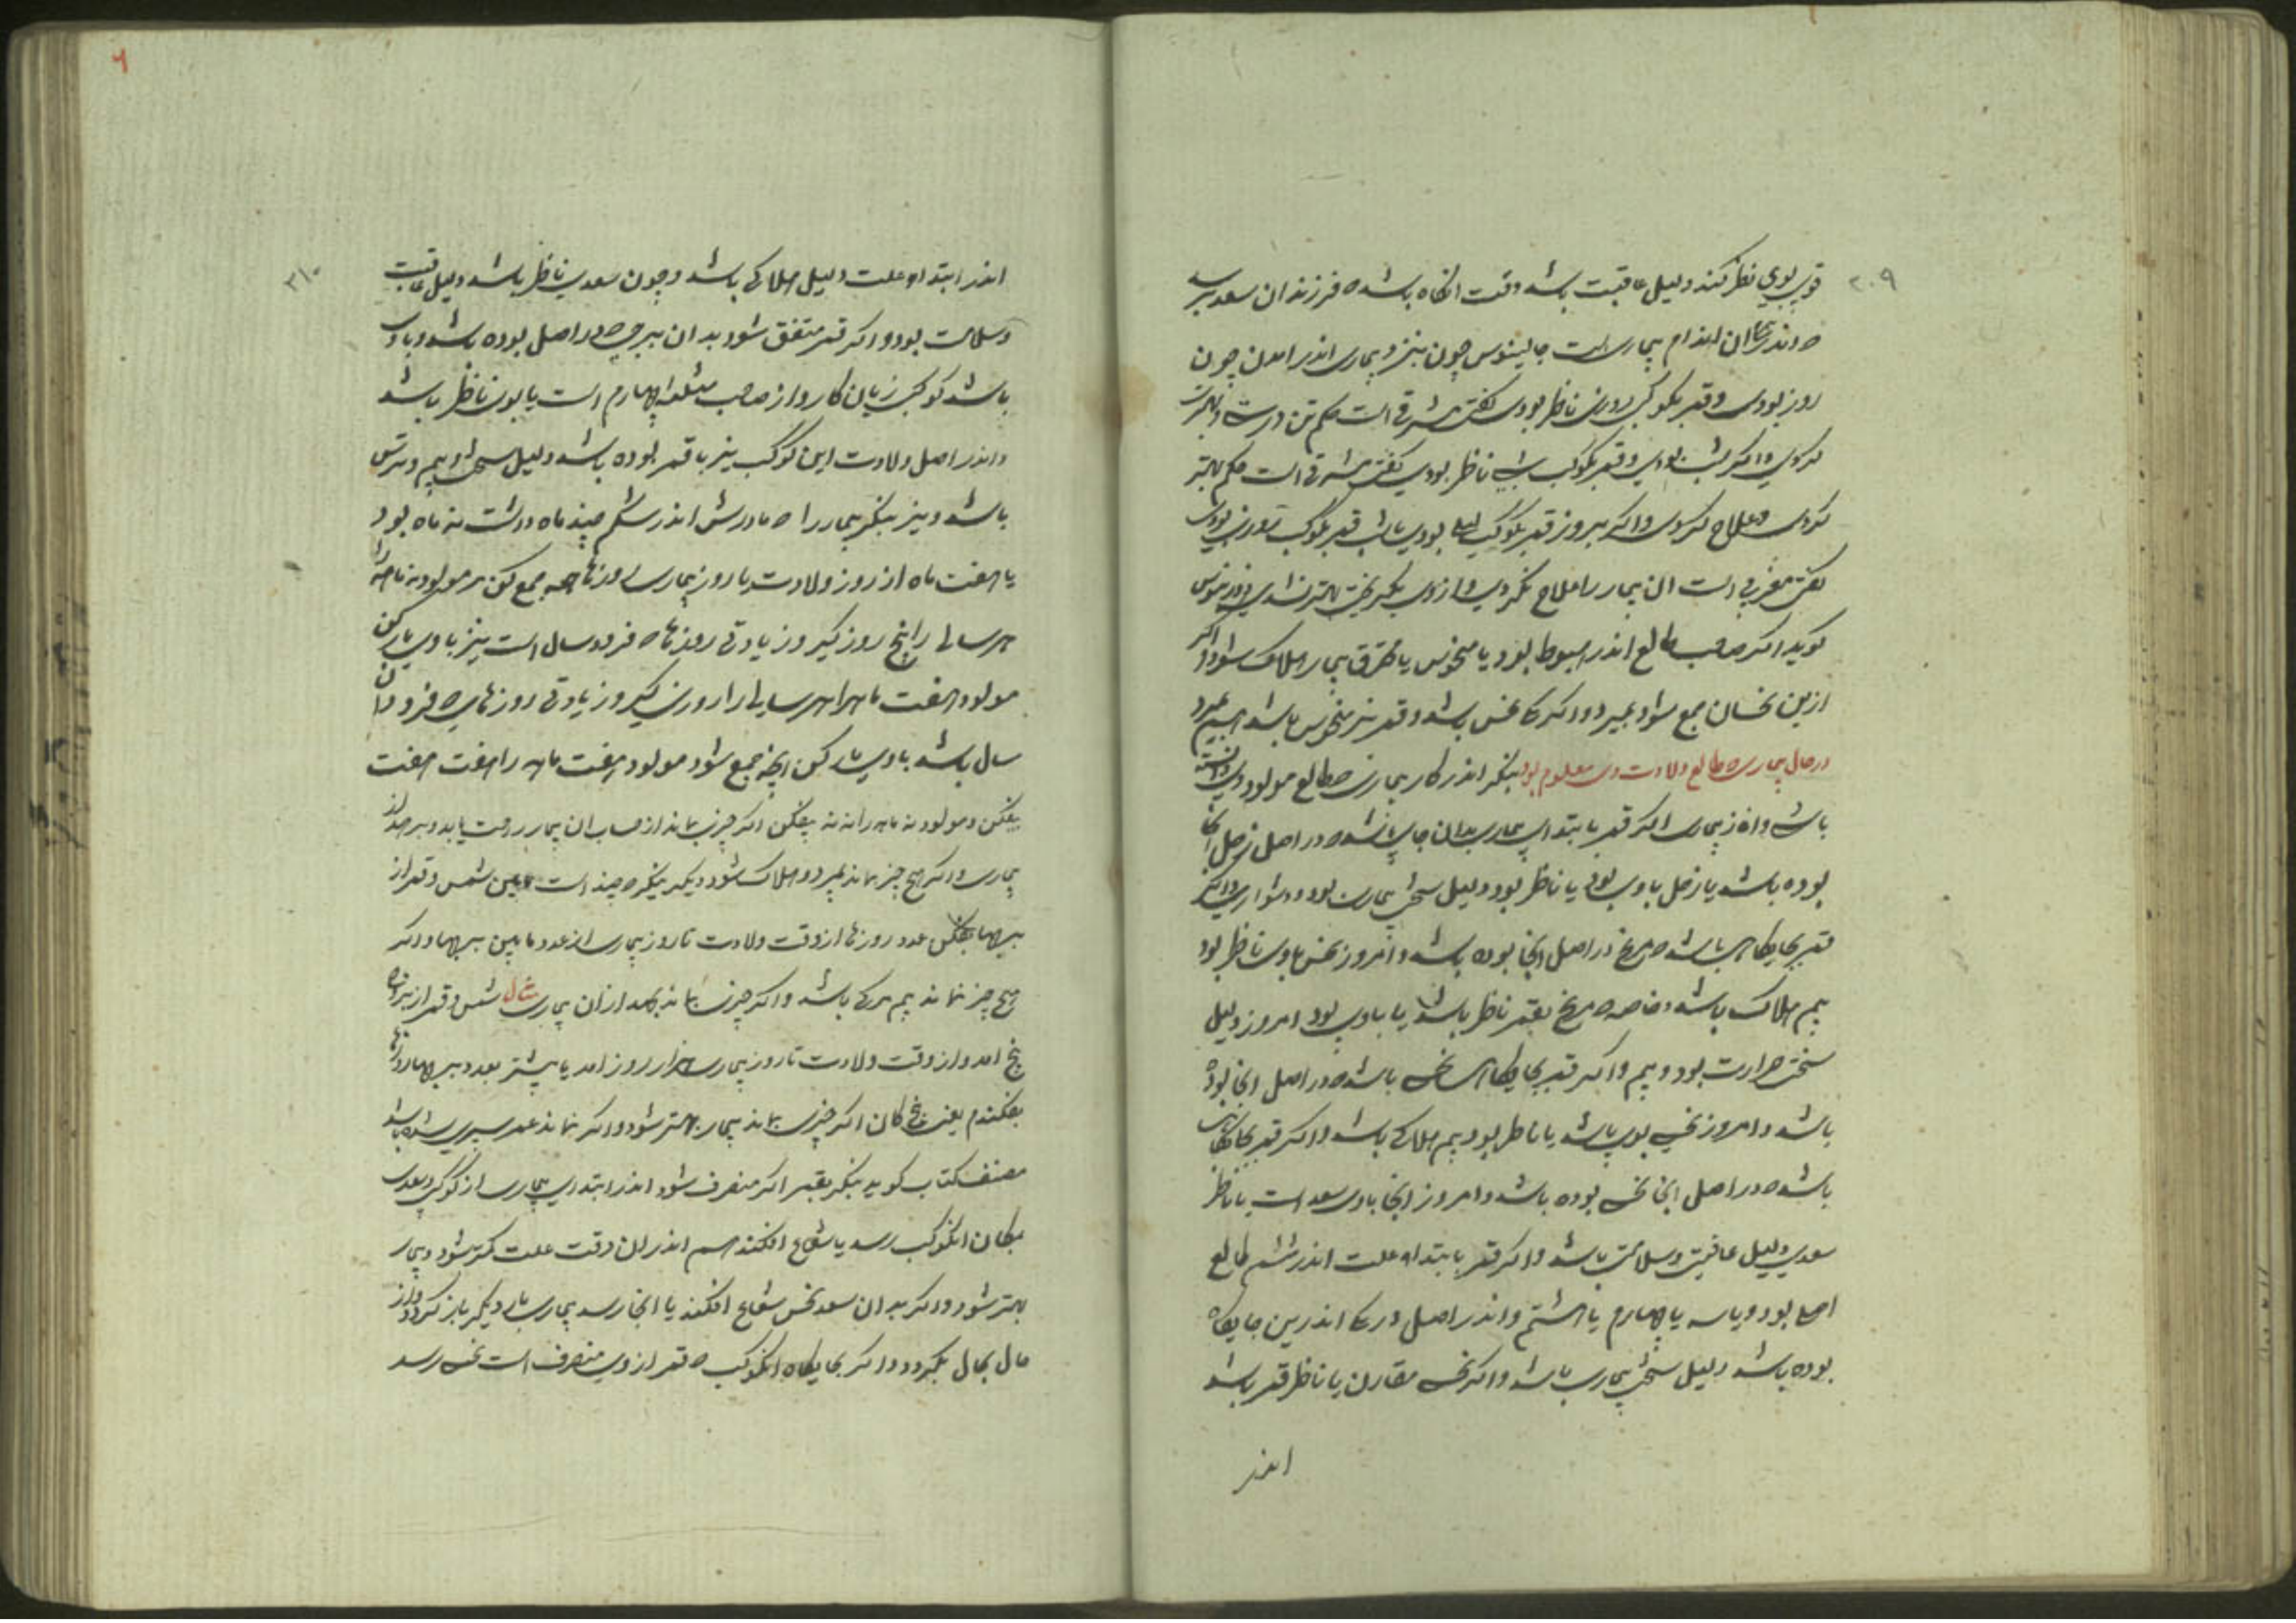 ۲۰۹
قوی بوی نظر کند دلیل عاقبت باشد وقت انکاه باشد که فرزندان سعد برسد
که اندر ان اندام بیماری است جالینوس چون بیماری اندر امدن چون
روز بودی و قمر بکوکب روزی ناظر بودی کفتی مشرقی است حکم تن درست
کردی و اکر شب بودی و قمر بکوکب شبی ناظر بودی کفتی مشرقی است حکم بهتر
کردی و علاج کردی و اکر بروز قمر بکوکب لیلی بودی یا بشب قمر بکوکب روزی بودی
کفتی مغربی است ان بیمار را علاج نکردی و از وی بکریختی بهتر نشدی
کوید اکر صاحب طالع اندر هبوط بود یا منحوس یا محترق بیمار هلاک شود و اکر
ازین نحسان جمع شود بمیرد و اکر نحس باشد و قمر نیز منحوس باشد بمیرد
در حال بیماری که طالع ولادت وی معلوم بود بنکر اندر کار بیماری که طالع مولود وی دانسته
باشی و اغاز بیماری اکر قمر بابتدای بیماری بدان جای باشد که در اصل زحل انجا
بوده باشد یا زحل با وی بود یا ناظر بود دلیل سختی بیماری بود و دشواری و اکر
قمر بجایکاهی باشد که مریخ در اصل انجا بوده باشد و امروز نحس با وی ناظر بود
بیم هلاک باشد و خاصه که مریخ بقمر ناظر باشد یا با وی بود امروز دلیل
سختی حرارت بود و بیم و اکر قمر بجایکاه نحس باشد که در اصل انجا بوده
باشد و امروز نحس بوی باشد یا ناظر بود بیم هلاکی باشد و اکر قمر بجایکاهی
باشد که در اصل انجا نحس بوده باشد و امروز انجا با وی سعد است یا ناظر
سعدی دلیل عافیت و سلامتی باشد و اکر قمر بابتداء علت اندر ششم طالع
اصل بود و یا سه یا چهارم یا هشتم و اندر اصل اندرین جایکاه
بوده باشد دلیل سختی بیماری باشد و اکر نحس مقارن یا ناظر قمر باشد
اندر
۲۱۰
اندر ابتداء علت دلیل هلاکی باشد و چون سعدی ناظر باشد دلیل عاقبت
و سلامت بود و اکر قمر متفق شود بدان برج که در اصل بوده باشد و با وی
باشد کوکبی زیان کار و از صاحب مثلثه چهارم است یا بوی ناظر باشد
و اندر اصل ولادت این کوکب نیز با قمر بوده باشد دلیل سختی و بیم و ترس
باشد و نیز بنکر بیمار را که مادرش اندر شکم چند ماه داشت نه ماه بود
یا هفت ماه از روز ولادت تا روز بیماری روزها همه جمع کن هر مولود نه ماهه را
هر سالی را پنج روز کیر و زیادتی روزها که فزود سال است نیز با وی یار کن
مولود هفت ماهه را هر سالی را روزی کیر و زیادتی روزهای که فزود ان
سال باشد با وی یار کن انچه جمع شود مولود هفت ماهه را هفت هفت
بیفکن و مولود نه ماهه را نه نه بیفکن اکر چیزی بماند از حساب ان بیمار راحت یابد
بیماری و اکر هیچ چیز نماند بمیرد و هلاک شود و دیکر بنکر که چند است مابین شمس و قمر از
برجها بفکن عدد روزها از وقت ولادت تا روز بیماری از عدد مابین برجها و اکر
هیچ چیز نماند بیم مرکی باشد و اکر چیزی بماند بجهد از ان بیماری مثال شمس و قمر از برجها
پنج امد و از وقت ولادت تا روز بیماری هزار روز امد یا بیشتر بعدد برجها روزها
بفکندم یعنی پنج کان اکر چیزی بماند بیمار بهتر شود و اکر نماند عمر سپری شده باشد
مصنف کتاب کوید بنکر بقمر اکر منصرف شود اندر ابتدای بیماری از کوکبی سعدی
بمکان انکوکب رسد یا شعاع افکند هم اندر ان وقت علت کمتر شود و بیمار
بهتر شود و اکر بدان سعد نحس شعاع افکند یا انجا رسد بیماری بار دیکر باز کردد و از
حال بحال بکردد و اکر بجایکاه انکوکب که قمر از وی منصرف است نحس رسد